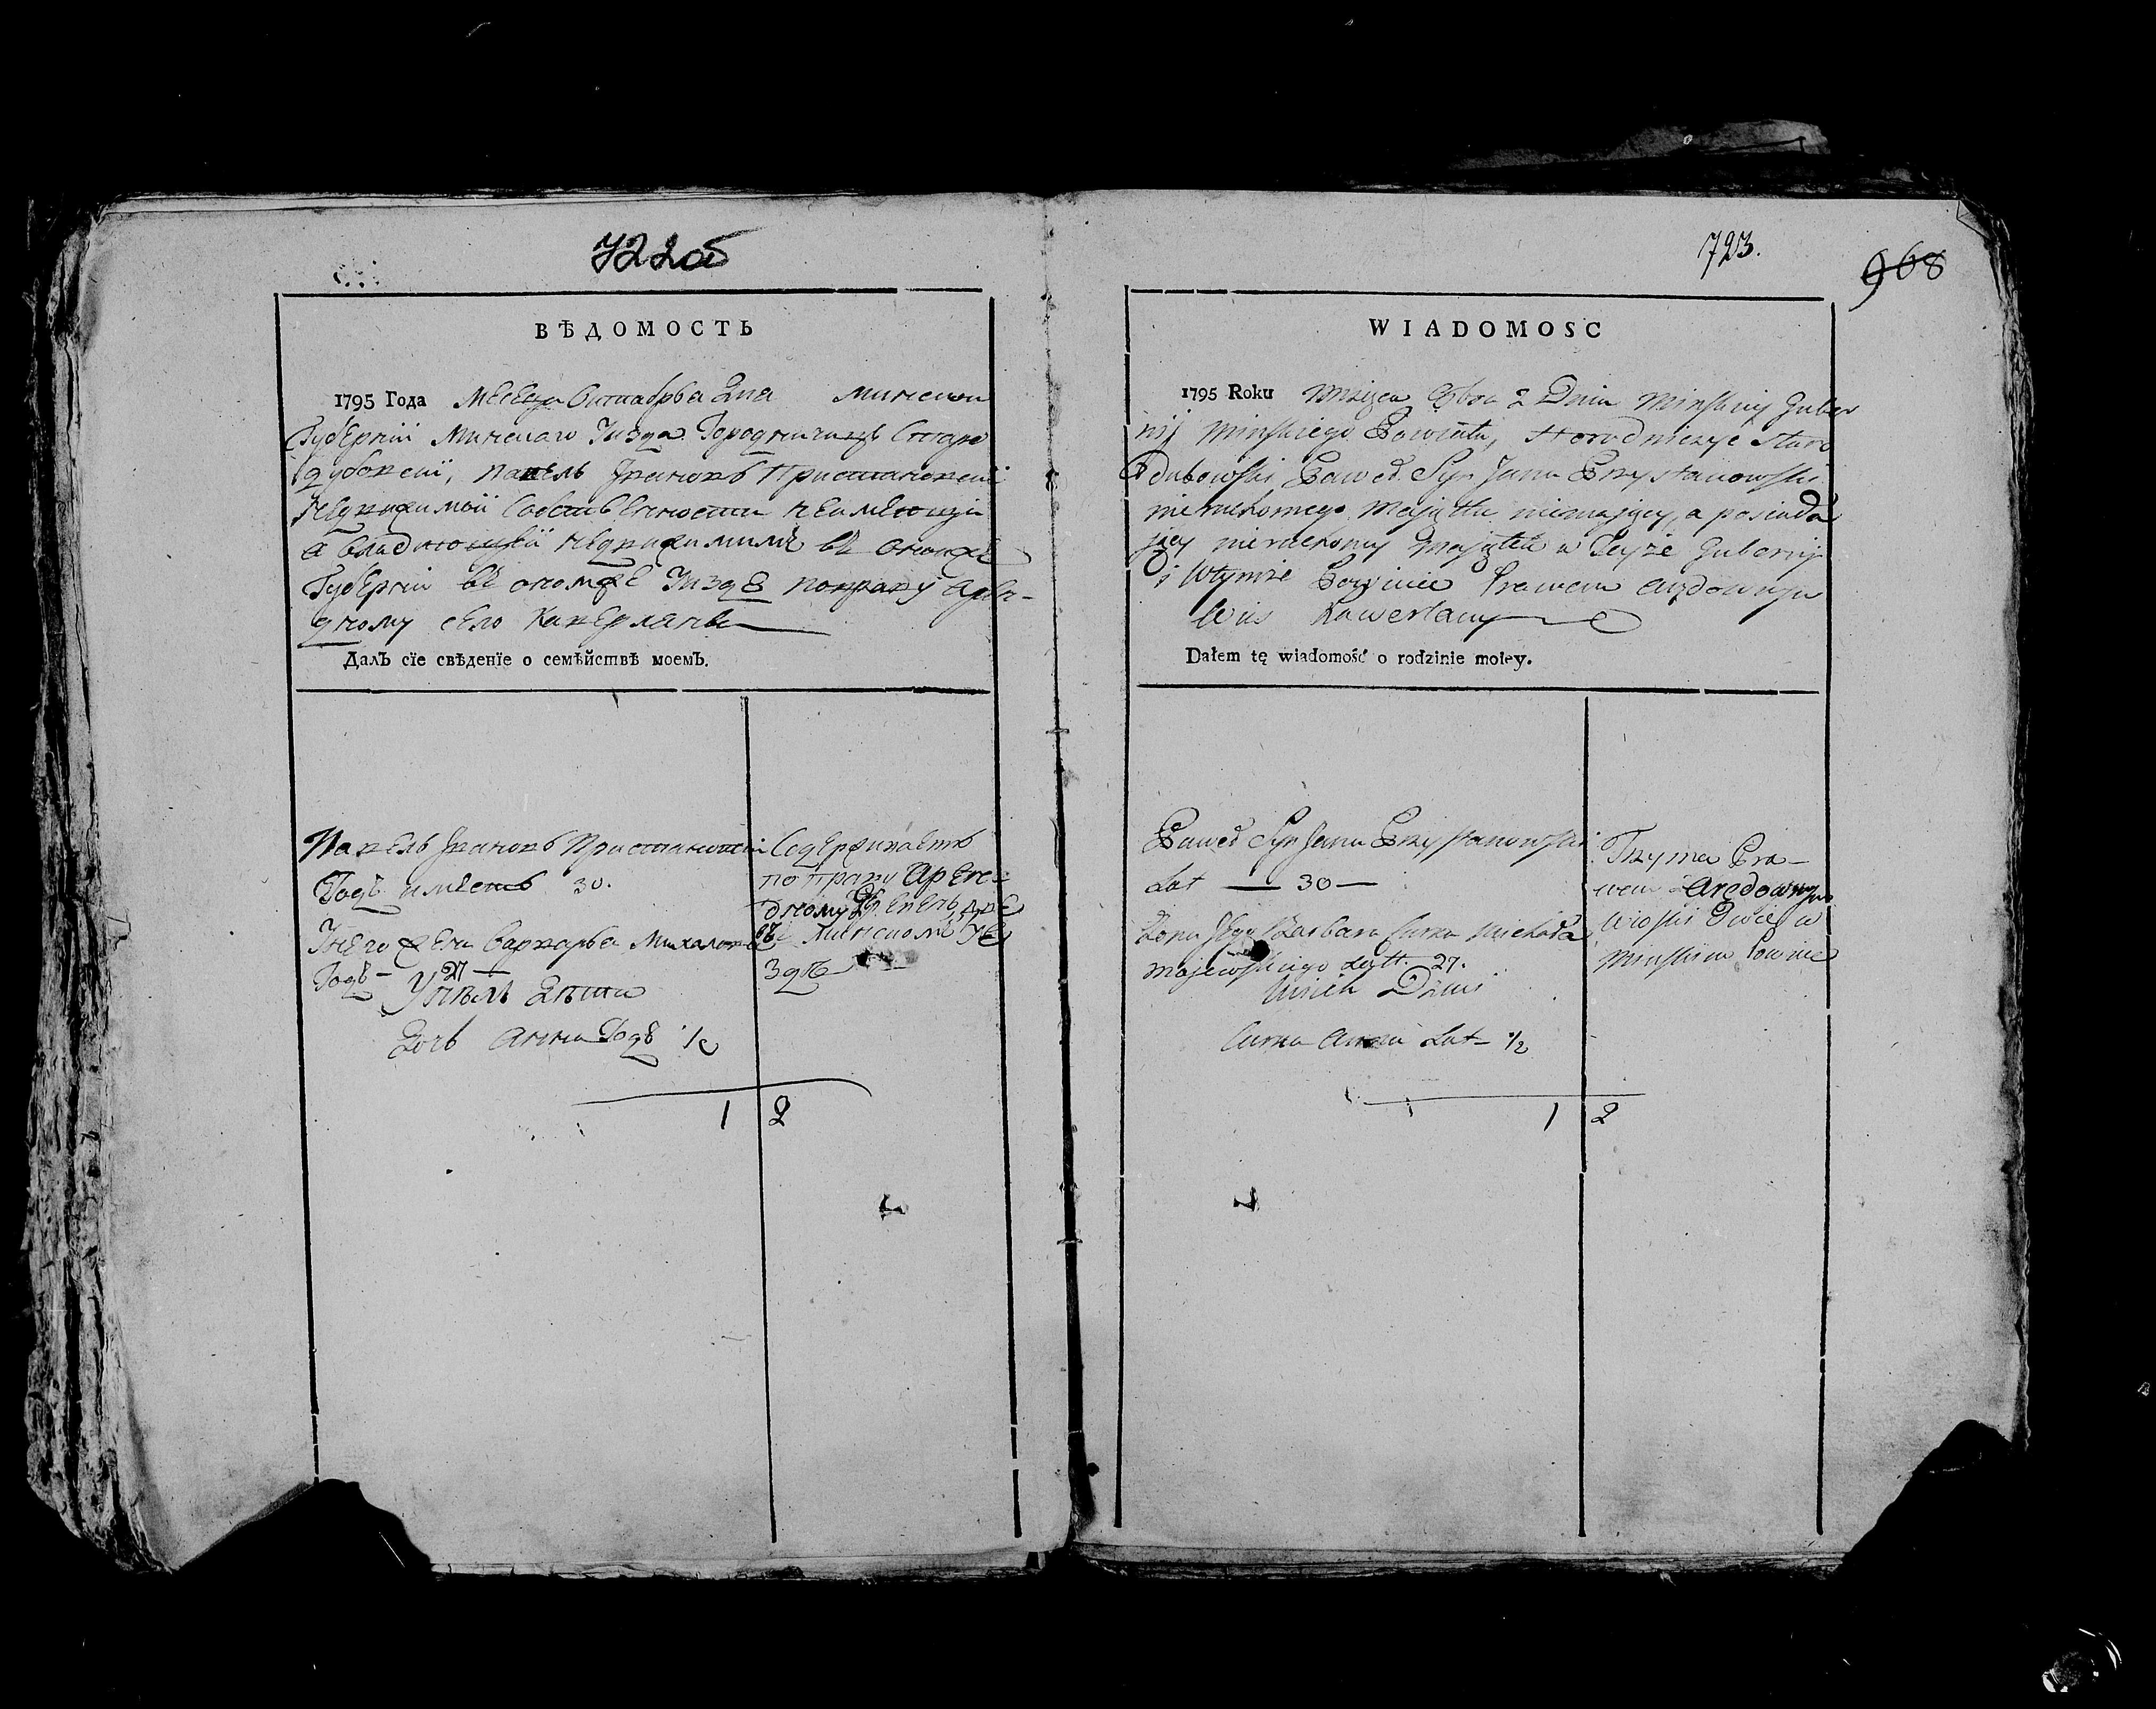 722об
ВѢДОМОСТЬ
1795 Года Месеца Октабрьа 2 дна Минской
Губернїи Минскаго Уизда Городничичъ Старо
дубовскїй, Павель Ивановъ Пристановскїй
недвижимой собственности неимѣющїй
а владеющїй недвижимимъ въ оной же
Губернїи въ оном же Уизде по праву арен-
дному село Каверляни
ДалЪ сїе свѣденїе о семѣйствѣ моемЪ.
Павель Ивановъ Пристановскїй
Годъ имѣетъ 30.
Унего жена Варварьа Михалова
Годъ - 27 -
У нѣмъ Дѣти
Дочь Анна Годъ 1/2
Содерживаетъ
по праву Аренс-
дному две
въ Минскомъ Уе
здѣ
1 2
723.
968
WIADOMOSC
1795 Roku Miesięca 8bra 2 Dnia Minskiej Guber
nij Minskiego Powiatu, Horodniczyc Staro
dubowski Paweł Syn Jana Przystanowski
nieruchomego Majątku niemający, a posiada
jący nieruchomy Majątek w Teyże Gubernij
i Wtymże Powiecie Prawem arędownym
Wieś Kawerlany
Dałem tę wiadomość o rodzinie moiey.
Paweł Syn Jana Przystanowski
Lat — 30 —
Żona Jego Barbara Curka Michała
Majewskiego Latt. 27.
Unich Dzieci
Curka Anna Lat 1/2
Trzyma Pra-
wem Arędownym
Wioski Dwie w
Minskim Powiecie
1 2